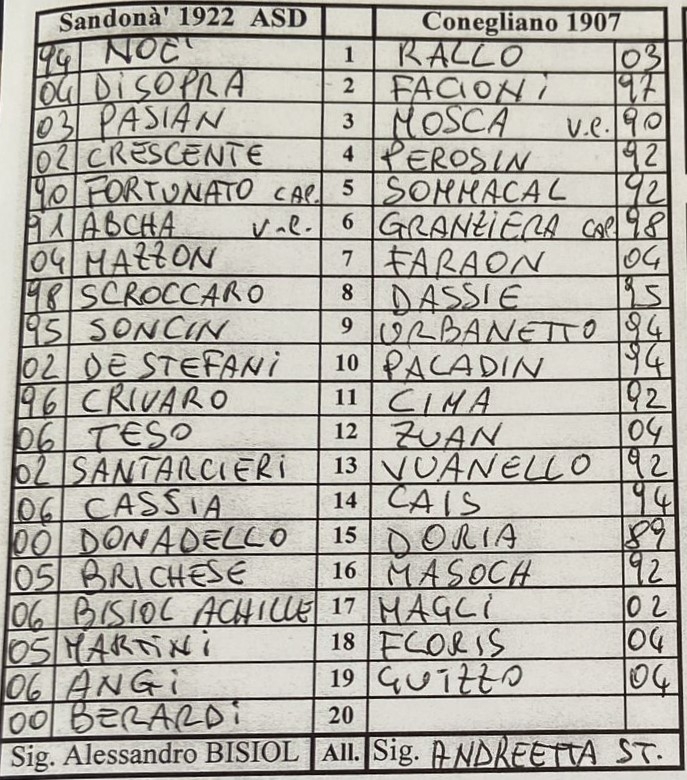 Sandonà' 1922 ASD Conegliano 1907
94 NOE' 1 RALLO 03
04 DISOPRA 2 FACIONI 97
03 PASIAN 3 MOSCA V.C. 90
02 CRESCENTE 4 PEROSIN 92
90 FORTUNATO CAP. 5 SOMMACAL 92
91 ABCHA V.C. 6 GRANZIERA CAP. 98
04 MAZZON 7 FARAON 04
98 SCROCCARO 8 DASSIE 95
95 SONCIN 9 URBANETTO 94
02 DE STEFANI 10 PALADIN 94
96 CRIVARO 11 CIMA 92
06 TESO 12 ZUAN 04
02 SANTARCIERI 13 VUANELLO 92
06 CASSIA 14 CAIS 94
00 DONADELLO 15 DORIA 89
05 BRICHESE 16 MASOCH 92
06 BISIOL ACHILLE 17 MAGLI 02
05 MARTINI 18 FLORIS 04
06 ANGI 19 GUIZZO 04
00 BERARDI 20
Sig. Alessandro BISIOL All. Sig. ANDREETTA ST.